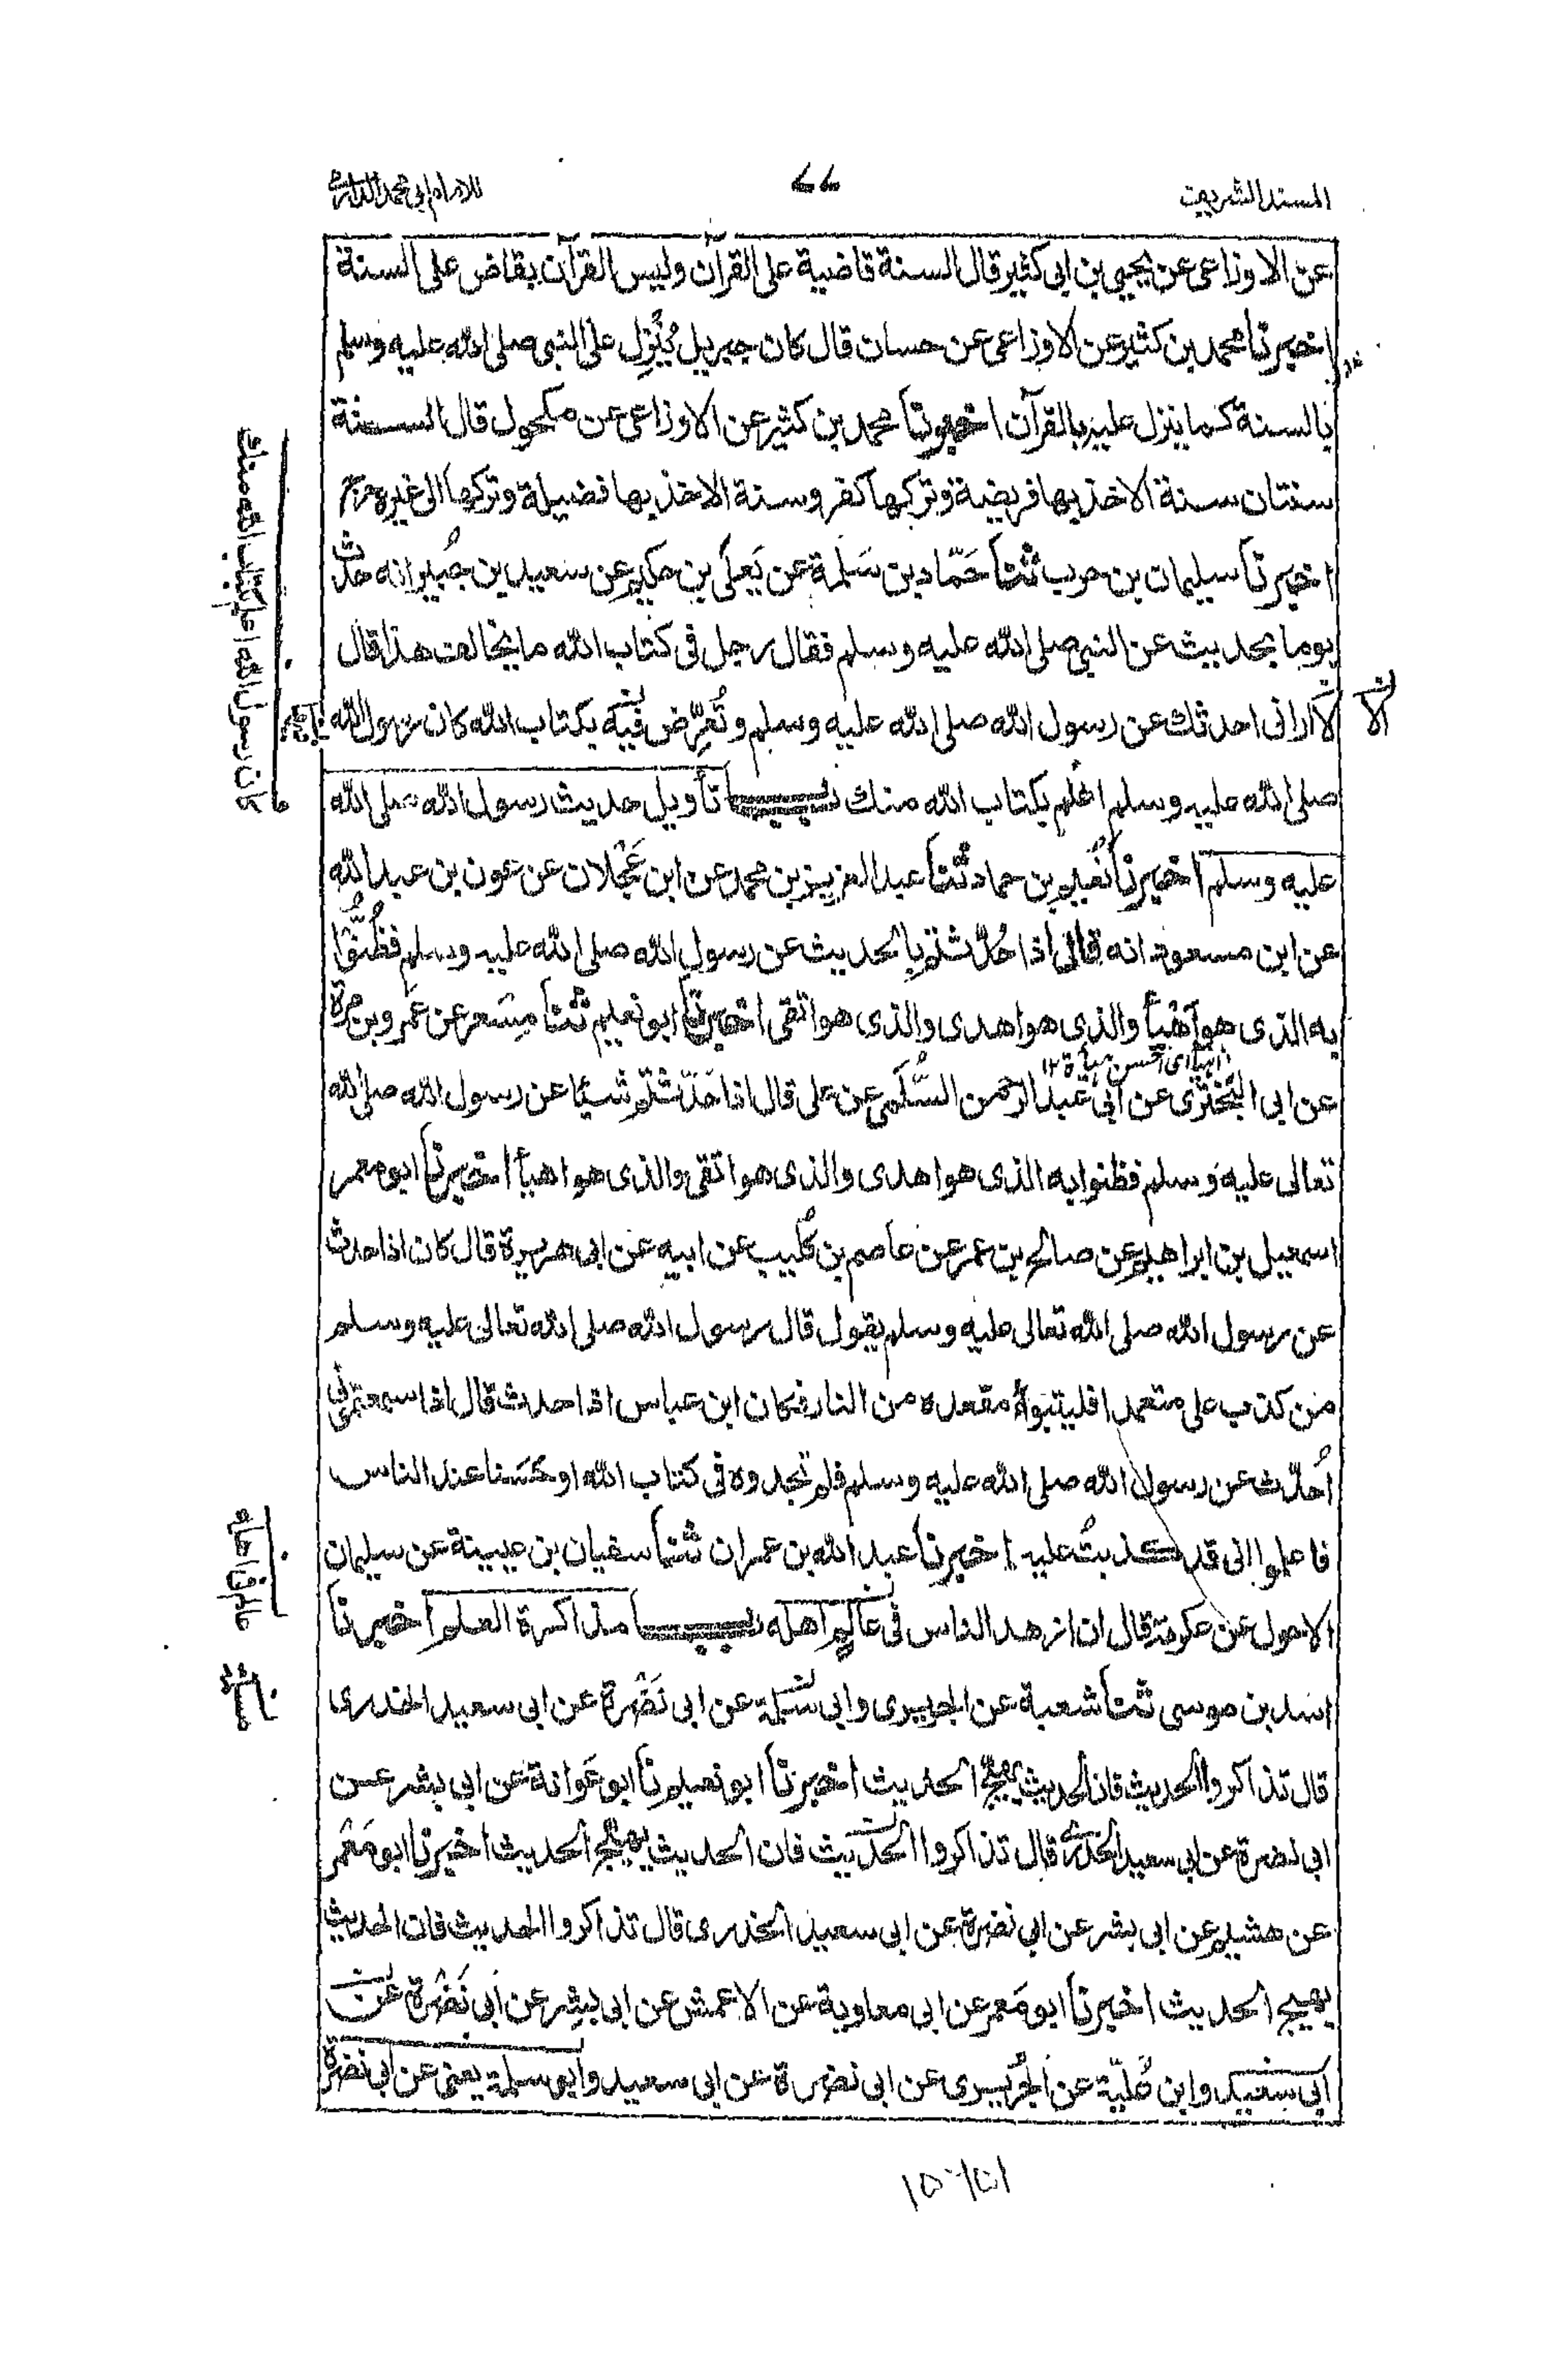 المسند الشريف
٧٧
للامام ابی محمد الدارمی
عن الاوزاعی عن یحیی بن ابی کثیر قال السنة قاضیة علی القرآن ولیس القرآن بقاض علی السنة
اخبرنا محمد بن کثیر عن الاوزاعی عن حسان قال کان جبریل یُنْزِل علی النبی صلی الله علیه وسلم
بالسنة کما ینزل علیه بالقرآن اخبرنا محمد بن کثیر عن الاوزاعی عن مکحول قال السنة
سنتان سنة الاخذ بها فریضة وترکها کفر وسنة الاخذ بها فضیلة وترکها الی غیره حرج
اخبرنا سلیمان بن حرب ثنا حَمّاد بن سَلِمة عن یَعلی بن حکیم عن سعید بن جُبیر انه حدّث
یوما بحدیث عن النبی صلی الله علیه وسلم فقال رجل فی کتاب الله ما یخالف هذا قال
لا اُرانی احدثک عن رسول الله صلی الله علیه وسلم وتُعَرِّض فیه بکتاب الله کان رسول الله
صلی الله علیه وسلم اعلم بکتاب الله منک باب تأویل حدیث رسول الله صلی الله
علیه وسلم اخبرنا نُعیم بن حماد ثنا عبد العزیز بن محمد عن ابن عَجْلان عن عون بن عبد الله
عن ابن مسعود انه قال اذا حُدِّثتم بالحدیث عن رسول الله صلی الله علیه وسلم فظُنُّوا
به الذی هو اَهْیَأ والذی هو اهدی والذی هو اتقی اخبرنا ابو نعیم ثنا مِسْعر عن عَمرو بن مرة
عن ابی البَخْتَرِی عن اَبی عَبد الرحمن السُّلَمی عن علی قال اذا حُدِّثتم شیئا عن رسول الله صلی الله
تعالی علیه وسلم فظنوا به الذی هو اهدی والذی هو اتقی والذی هو اهیأ اخبرنا ابو معمر
اسمعیل بن ابراهیم عن صالح بن عمر عن عاصم بن کُلیب عن ابیه عن ابی هریرة قال کان اذا حدث
عن رسول الله صلی الله تعالی علیه وسلم یقول قال رسول الله صلی الله تعالی علیه وسلم
من کذب علی متعمدا فلیتبوأ مقعده من النار فکان ابن عباس اذا حدث قال اذا سمعتمونی
اُحدّث عن رسول الله صلی الله علیه وسلم فلم تجدوه فی کتاب الله او حَسَنا عند الناس
فاعلموا انی قد کذبتُ علیه اخبرنا عبد الله بن عمران ثنا سفیان بن عیینة عن سلیمان
الاحول عن عکرمة قال ان ازهد الناس فی عالِمٍ اهلُه باب مذاکرة العلم اخبرنا
اسد بن موسی ثنا شعبة عن الجریری وابی سَلمة عن ابی نَضْرة عن ابی سعید الخدری
قال تذاکروا الحدیث فان الحدیث یهیج الحدیث اخبرنا ابو نعیم نا ابو عَوانة عن ابی بشر عن
ابی نضرة عن ابی سعید الخدری قال تذاکروا الحدیث فان الحدیث یهیج الحدیث اخبرنا ابو مَعْمر
عن هشیم عن ابی بشر عن ابی نضرة عن ابی سعید الخدری قال تذاکروا الحدیث فان الحدیث
یهیج الحدیث اخبرنا ابو مَعمر عن ابی معاویة عن الاعمش عن ابی بِشر عن ابی نَضْرة عن
ابی سعید وابن عُلَیّة عن الجُرَیری عن ابی نضرة عن ابی سعید وابو سلمة یعنی عن ابی نضرة
اهیأ ای احسن هیأة ۱۲
الا
کان رسول الله اعلم بکتاب الله منک
عالم فی اهله